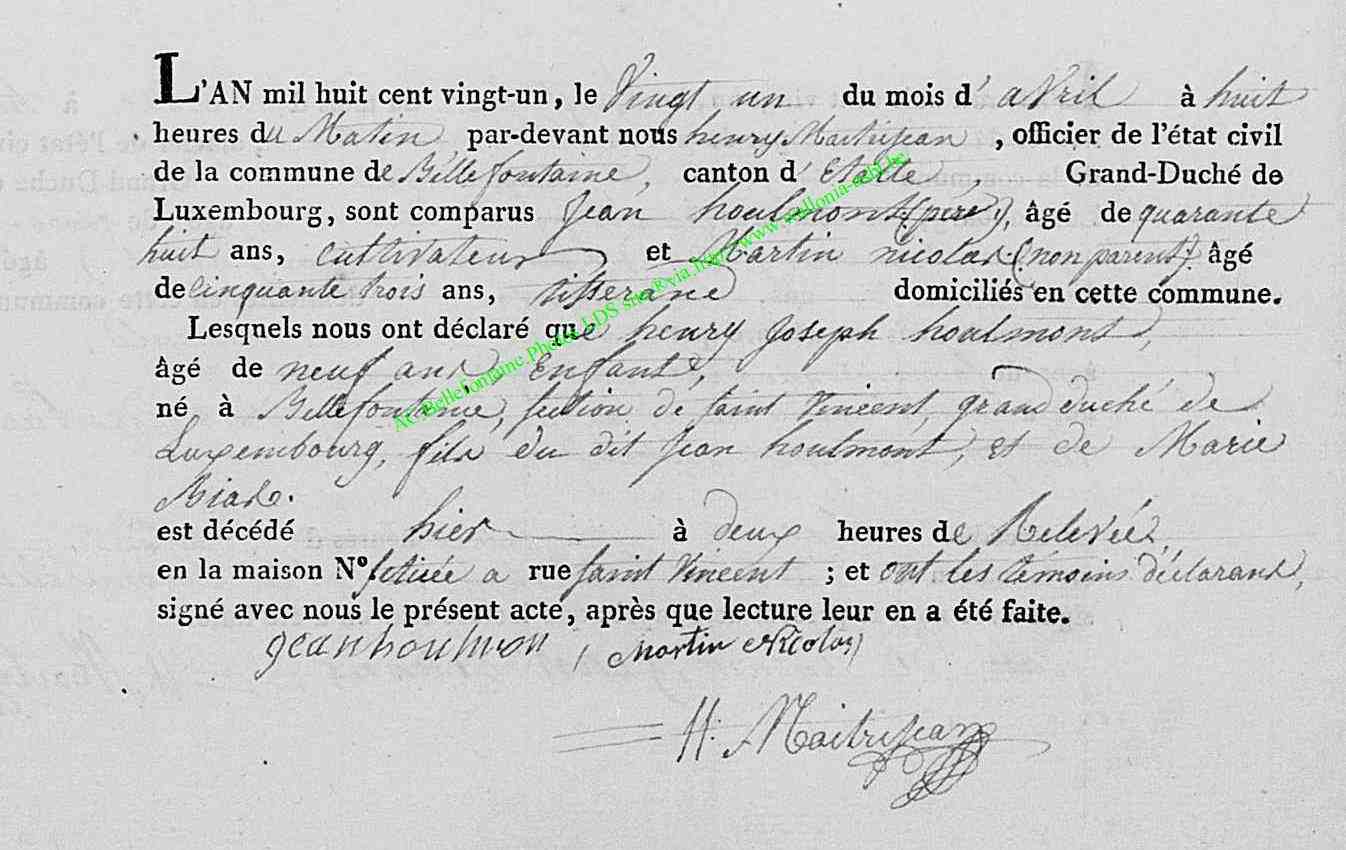 L'AN mil huit cent vingt-un, le Vingt un du mois d' avril à huit
heures du Matin par-devant nous henry Maitrejean, officier de l'état civil
de la commune de Bellefontaine, canton d' Etalle, Grand-Duché de
Luxembourg, sont comparus Jean houlmont (pere), âgé de quarante
huit ans, cultivateur et Martin nicolas (non parent) âgé
de cinquante trois ans, tisserand domiciliés en cette commune.
Lesquels nous ont déclaré que henry Joseph houlmont,
âgé de neuf ans, Enfant,
né à Bellefontaine, section de saint Vincent, grand duché de
Luxembourg, fils du dit Jean houlmont, et de Marie
est décédé hier à deux heures de Relevée
en la maison N° scituée a rue saint Vincent ; et ont les témoins déclarans,
signé avec nous le présent acte, après que lecture leur en a été faite.
jean houlmon, Martin Nicolas
H. Maitrejean
AC Bellefontaine Photos LDS www.wallonia-asbl.be